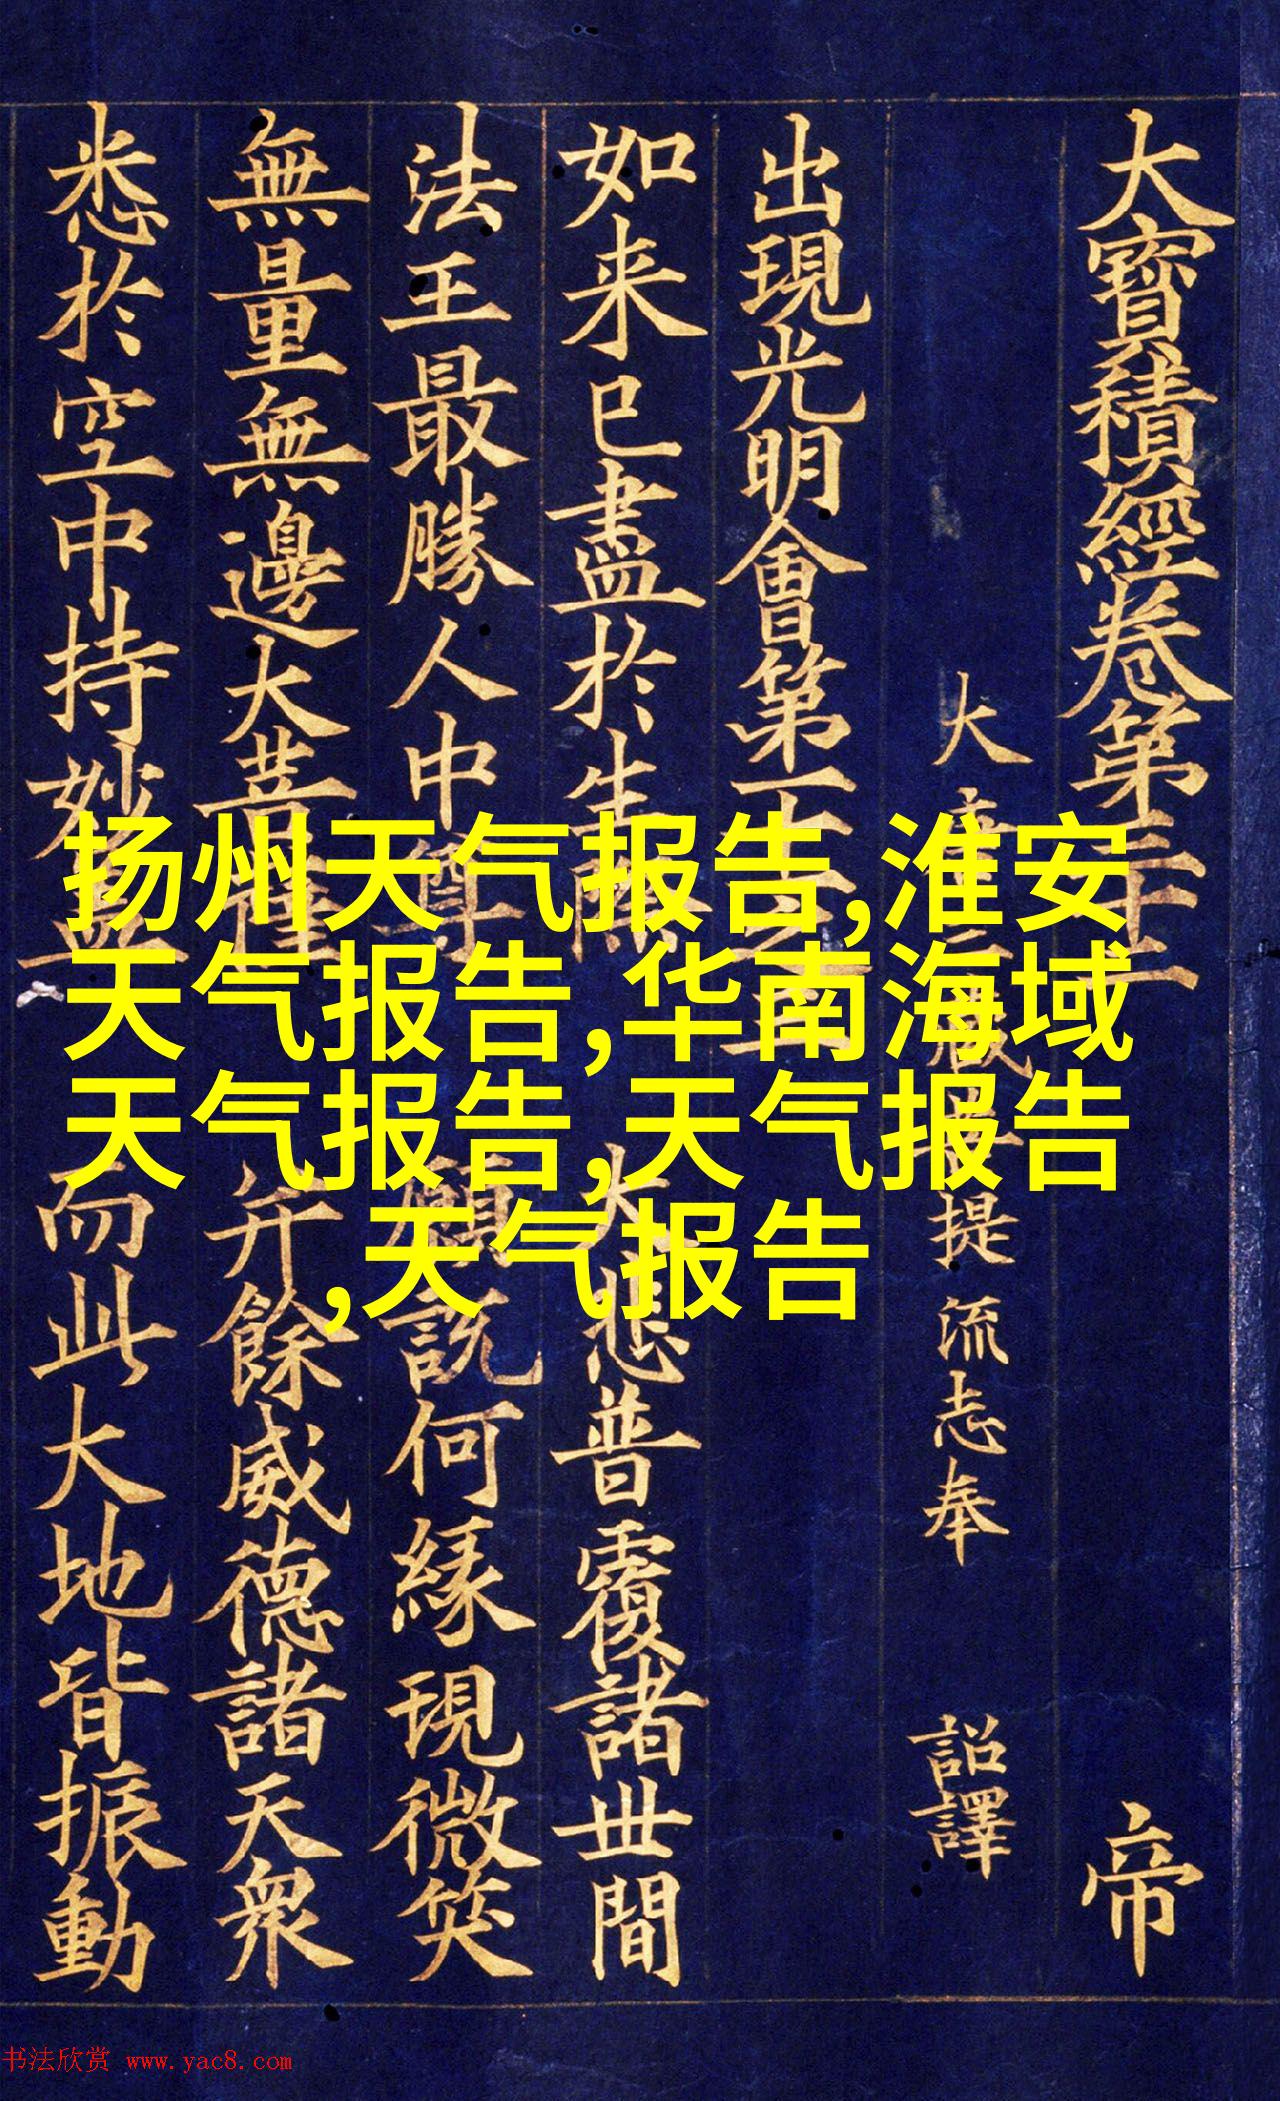 大寶積經卷第三十二 帝
大唐三藏菩提流志奉 詔譯
出現光明會第十一之三
如来已盡於生際 大悲普覆諸世間
法王最勝人中尊 願說何緣現微笑
無量無邊大菩薩 并餘威德諸天衆
悉於空中持妙蓋 而此大地皆振動
扬州天气报告,淮安
天气报告,华南海域
天气报告,天气报告
,天气报告
书法欣赏 www.yac8.com